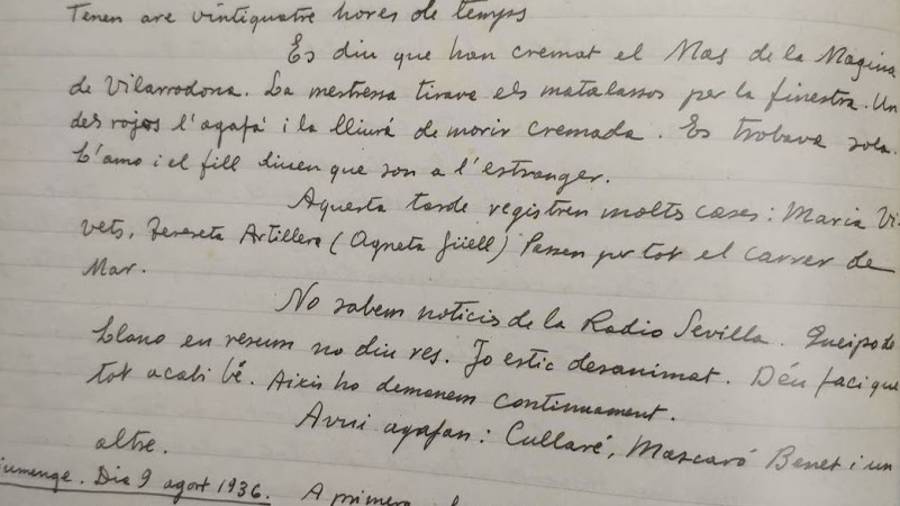 Tenen are vintiquatre hores de temps
Es diu que han cremat el Mas de la Magina
de Vilarrodona. La mestressa tirava els matalassos per la finestra. Un
dels rojos l'agafà i la lliurá de morir cremada. Es trobava sola.
L'amo i el fill diuen que son a l'estranger.
Aquesta tarde registren molts cases: Maria Vi-
vets, Tereseta Artillera (Agneta Güell) Passen per tot el carrer de
Mar.
No sabem noticis de la Radio Sevilla. Queipo de
Llano en resum no diu res. Jo estic desanimat. Déu faci que
tot acabi bé. Aixis ho demanem continuament.
Avui agafan: Cullaré, Mascaró Benet i un
altre.
iumenge. Dia 9 agort 1936. A primera